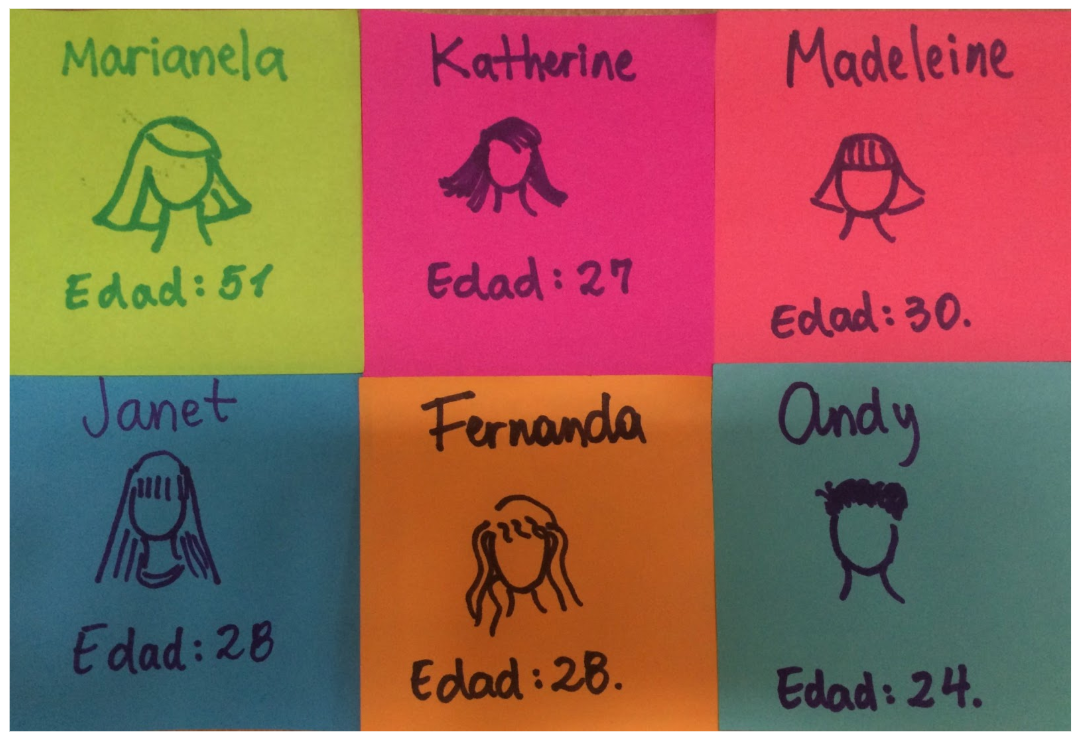 Marianela
Edad: 51
Katherine
Edad: 27
Madeleine
Edad: 30.
Janet
Edad: 28
Fernanda
Edad: 28.
Andy
Edad: 24.